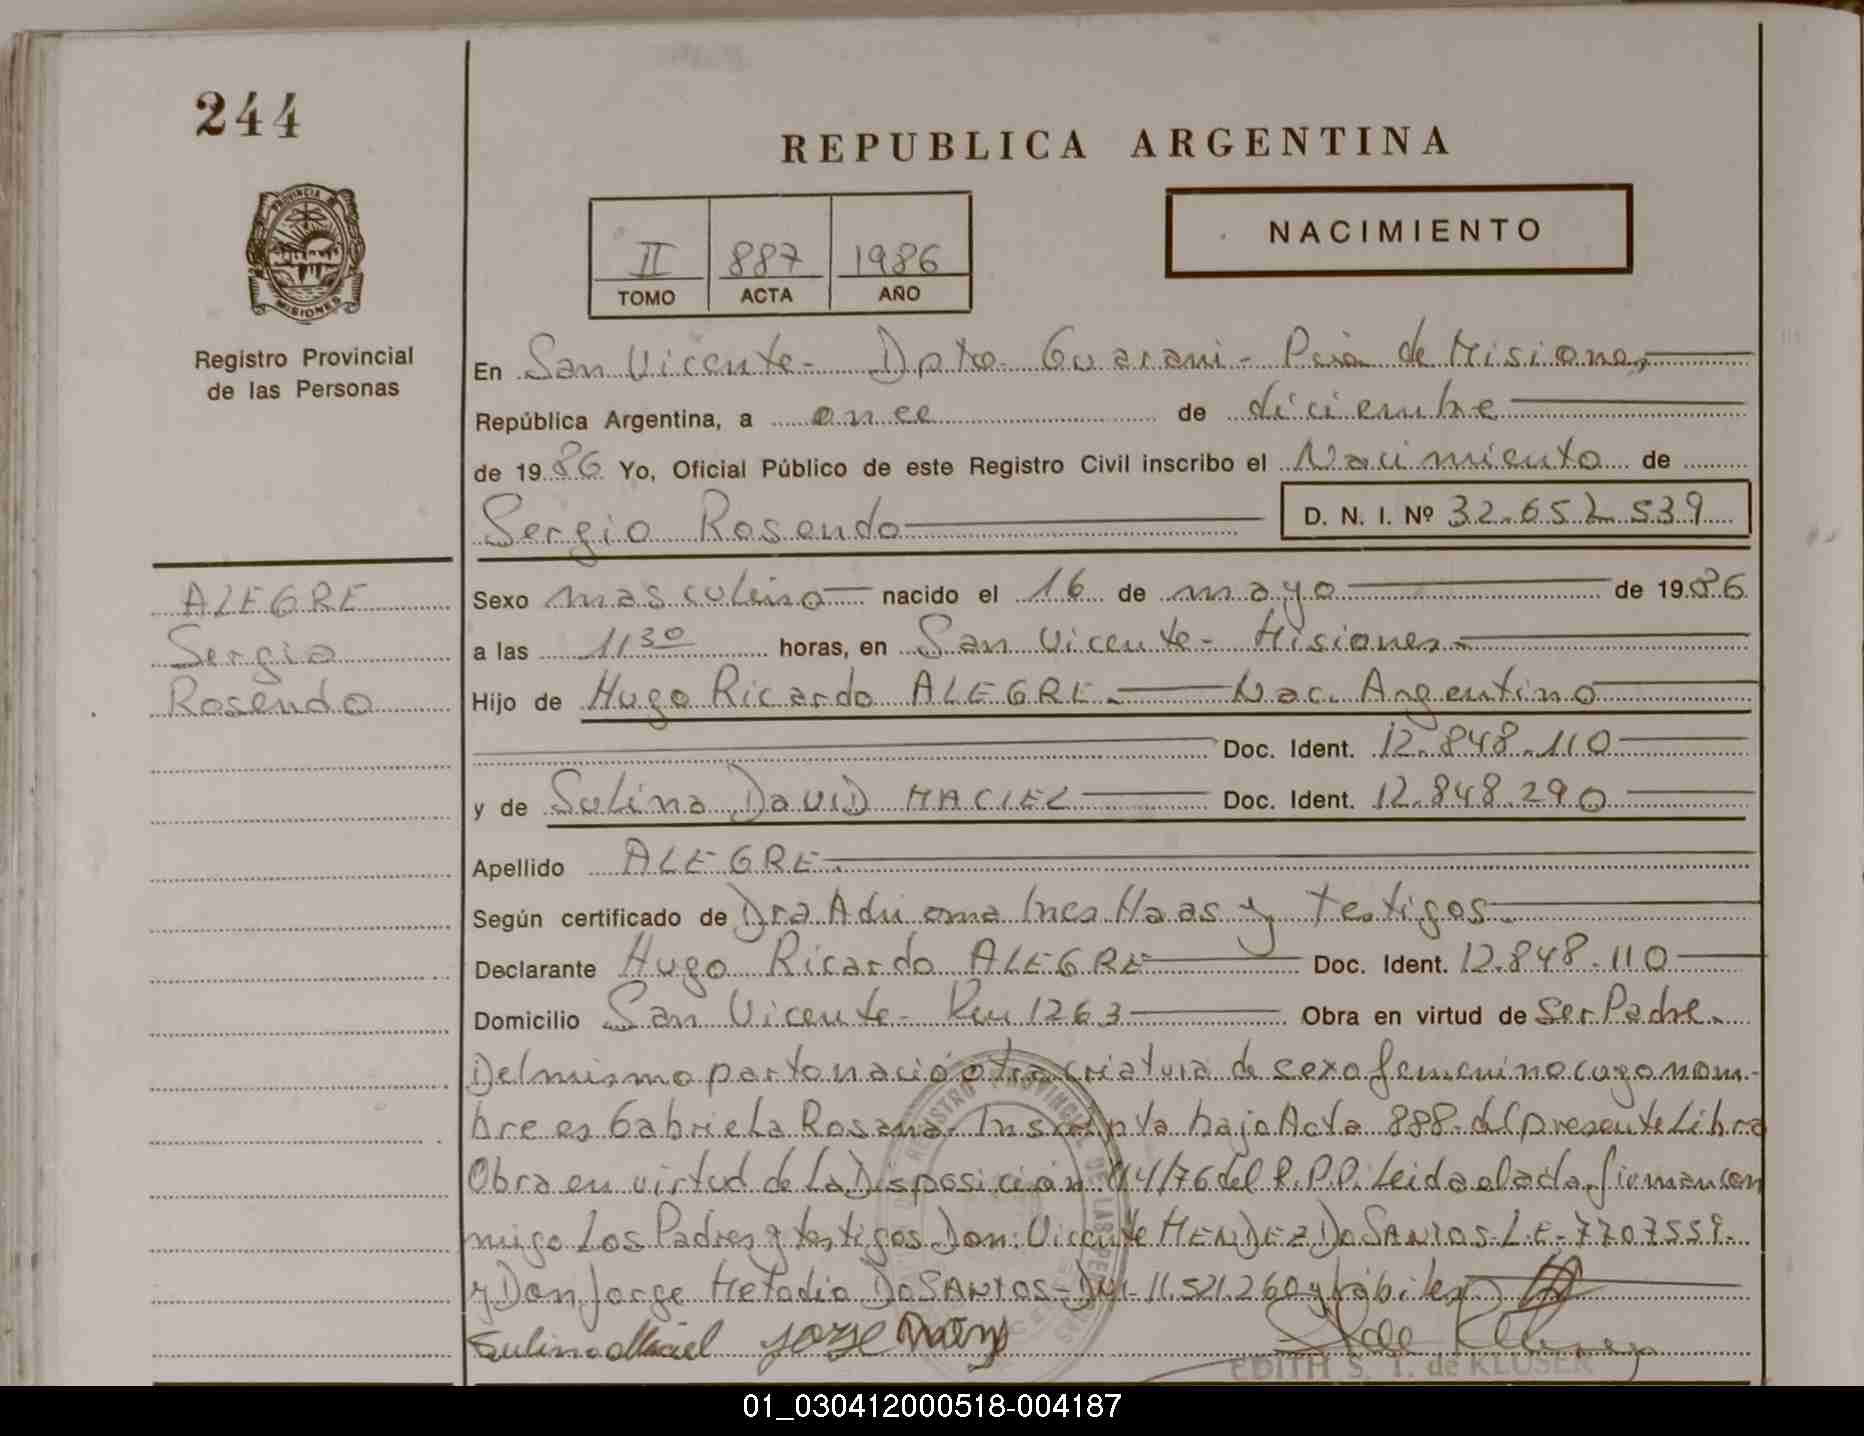 244
REPUBLICA ARGENTINA
PROVINCIA DE
MISIONES
Registro Provincial
de las Personas
II 887 1986
TOMO ACTA AÑO
NACIMIENTO
En San Vicente - Dpto. Guarani - Pcia de Misiones,
República Argentina, a once de diciembre
de 1986 Yo, Oficial Público de este Registro Civil inscribo el Nacimiento de
Sergio Rosendo D. N. I. Nº 32.652.539
ALEGRE
Sergio
Rosendo
Sexo masculino nacido el 16 de mayo de 1986
a las 11 30 horas, en San Vicente - Misiones -
Hijo de Hugo Ricardo ALEGRE. Nac. Argentino
Doc. Ident. 12.848.110
y de Sulina DaVID MACIEL Doc. Ident. 12.848.290
Apellido ALEGRE.
Según certificado de Dra Adriana Ines Haas y testigos.
Declarante Hugo Ricardo ALEGRE Doc. Ident. 12.848.110
Domicilio San Vicente - Km 1263 Obra en virtud de Ser Padre.
Del mismo parto nació otra criatura de sexo femenino cuyo nom-
bre es Gabriela Rosana. Inscripta bajo Acta 888. del presente Libro
Obra en virtud de La Disposición 114/76 del R.P.P. Leida el acta, firman con
migo Los Padres y testigos Don: Vicente MENDEZ Do SANTOS - L.E - 7707559.
y Don Jorge Metodio Do SANTOS - DNI - 11.521.260 y hábiles
Sulina Maciel JOZSE
EDITH S. T. de KLUSER
01_030412000518-004187